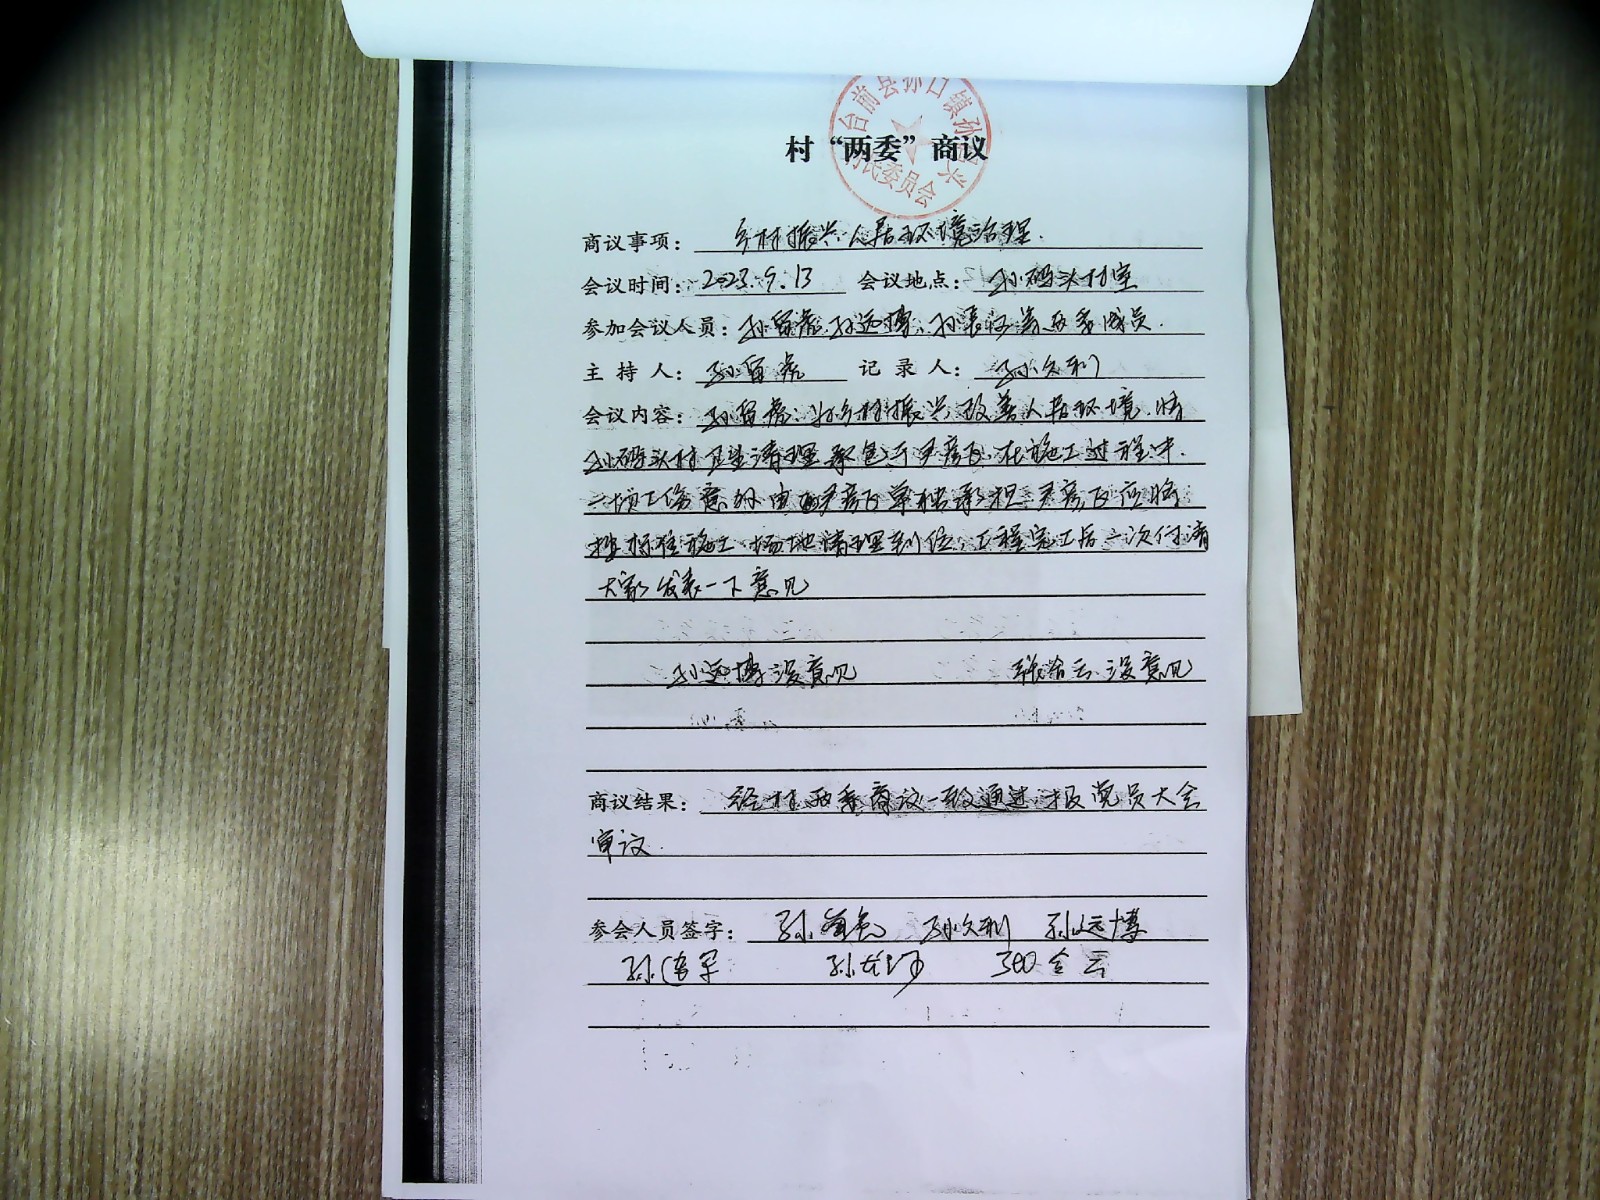 台前县孙口镇孙
村民委员会
村“两委”商议
商议事项：乡村振兴人居环境治理.
会议时间：2023.9.13 会议地点：孙码头村室
参加会议人员：孙留彪、孙远博、孙 等两委成员.
主持人：孙留彪 记录人：孙久利
会议内容：孙留彪：为乡村振兴改善人居环境.将
孙码头村卫生清理承包于尹彦飞.在施工过程中.
一切工伤意外由尹彦飞单独承担.尹彦飞应将
按标准施工.场地清理到位.工程完工后一次付清
大家发表一下意见
孙远博没意见 张金云没意见
商议结果：经村两委商议一致通过.报党员大会
审议.
参会人员签字：孙留彪 孙久利 孙远博
孙 孙 金云